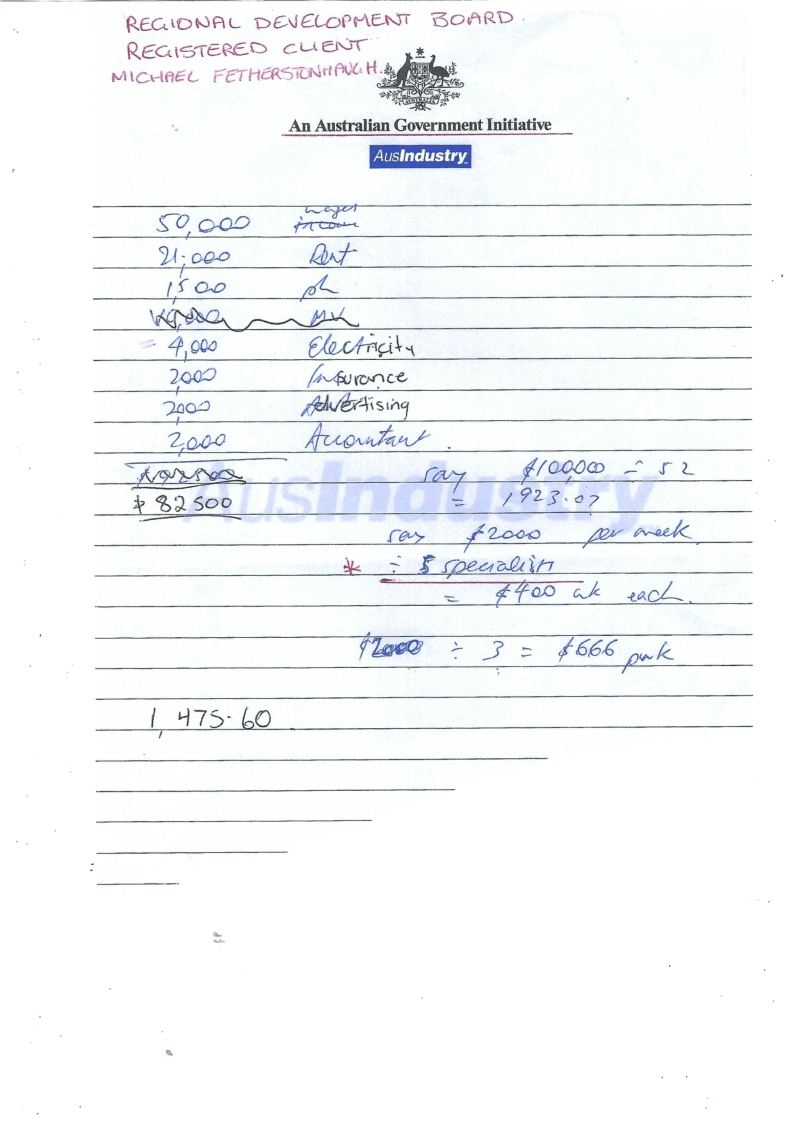 REGIONAL DEVELOPMENT BOARD.
REGISTERED CLIENT
MICHAEL FETHERSTONHAUGH.
An Australian Government Initiative
AusIndustry
50,000 wages income
21,000 Rent
1,500 ph
MV
4,000 Electricity
2000 Insurance
2000 Advertising
2,000 Accountant.
say $100,000 ÷ 52
$ 82500 = 1923.07
AusIndustry
say $2000 per week
* ÷ 5 specialist
= $400 wk each.
$2000 ÷ 3 = $666 pwk
1,475.60